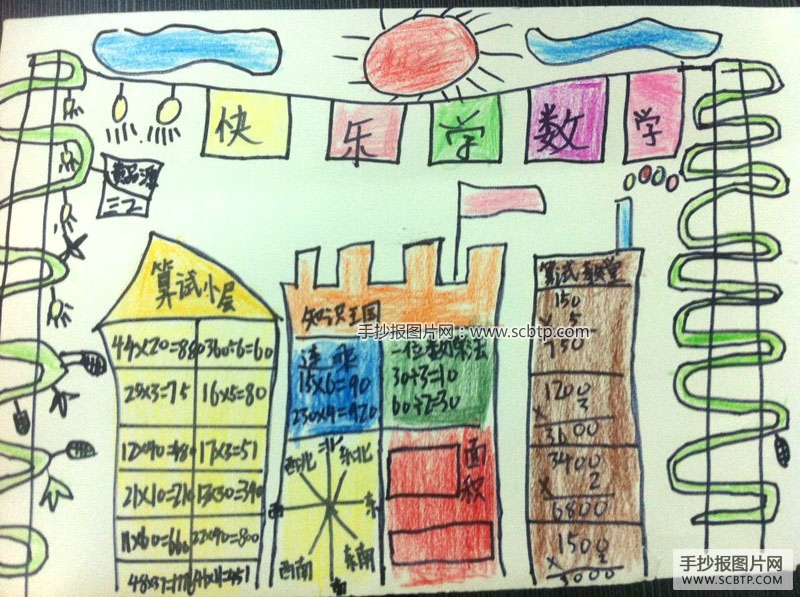 快乐学数学
三2
算试小屋
44×20=880 360÷6=60
25×3=75 16×5=80
12×40=480 17×3=51
21×10=210 13×30=390
11×60=660
知识王国
连乘
15×6=90
230×4=920
二位数乘法
30÷3=10
60÷2=30
北
西北 东北
西 东
西南 东南
南
面积
算式教堂
150
× 5
750
1200
× 3
3600
3400
× 2
6800
1500
× 2
3000
手抄报图片网：www.scbtp.com
手抄报图片网
WWW.SCBTP.COM